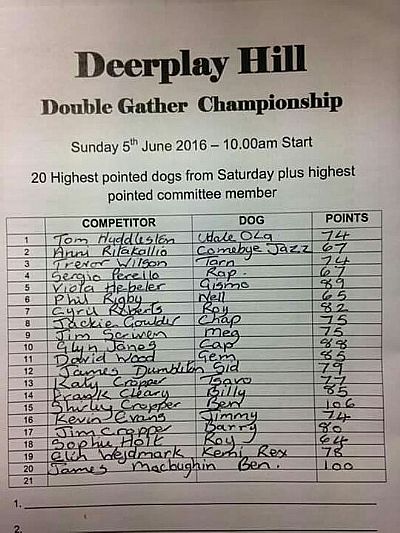 Deerplay Hill
Double Gather Championship
Sunday 5th June 2016 – 10.00am Start
20 Highest pointed dogs from Saturday plus highest
pointed committee member
COMPETITOR DOG POINTS
1 Tom Huddleston Udale Olg 74
2 Anni Ritakallio Comebye Jazz 67
3 Trevor Wilson Tarn 74
4 Sergio Perello Rap. 67
5 Viola Hebeler Gismo 89
6 Phil Rigby Nell 65
7 Cyril Roberts Roy 82
8 Jackie Goulder Chap 75
9 Jim Scrwen Meg 75
10 Glyn Jones Cap 88
11 David Wood Gem 85
12 James Dumbleton Sid 79
13 Katy Cropper Tsavo 77
14 Frank Cleary Billy 85
15 Shirley Cropper Ben 106
16 Kevin Evans Jimmy 74
17 Jim Cropper Barry 80
18 Sophie Holt Roy 64
19 Wejdmark Kemi Rex 78
20 James Macbughin Ben. 100
21
1.
2.